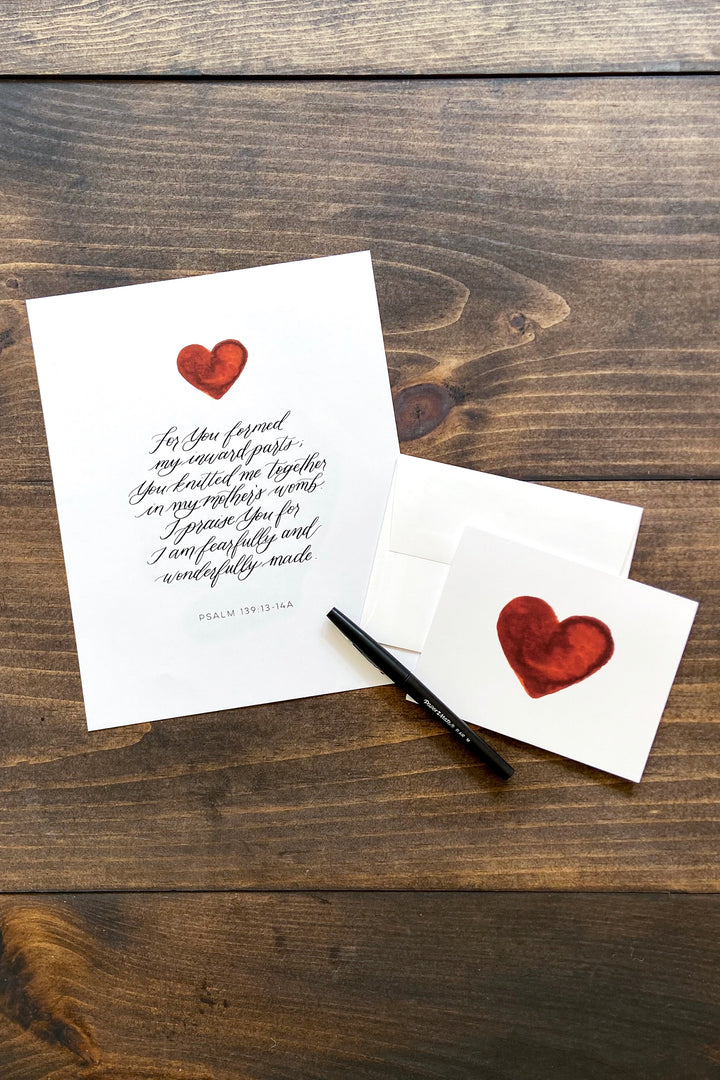 For You formed
my inward parts;
You knitted me together
in my mother's womb.
I praise You for
I am fearfully and
wonderfully made.
PSALM 139:13-14A